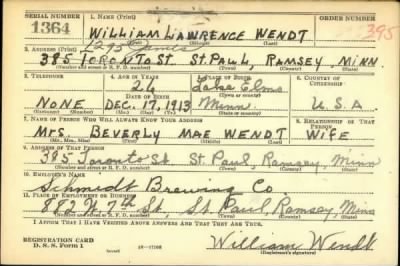 SERIAL NUMBER 1. NAME (Print) 395
1364 WILLIAM LAWRENCE WENDT
(First) (Middle) (Last)
2. ADDRESS (Print) 1295 James
385 TORONTO ST. ST. PAUL, RAMSEY, MINN
(Number and street or R. F. D. number) (Town) (County) (State)
3. TELEPHONE 4. AGE IN YEARS 5. PLACE OF BIRTH 6. COUNTRY OF CITIZENSHIP
26 Lake Elmo
DATE OF BIRTH (Town or county)
NONE DEC. 17, 1913 Minn. U.S.A.
(Exchange) (Number) (Mo.) (Day) (Yr.) (State or country)
7. NAME OF PERSON WHO WILL ALWAYS KNOW YOUR ADDRESS 8. RELATIONSHIP OF THAT PERSON
Mrs. BEVERLY MAE WENDT WIFE
(Mr., Mrs., Miss) (First) (Middle) (Last)
9. ADDRESS OF THAT PERSON
385 Toronto St St. Paul, Ramsey, Minn
(Number and street or R. F. D. number) (Town) (County) (State)
10. EMPLOYER'S NAME
Schmidt Brewing Co
11. PLACE OF EMPLOYMENT OR BUSINESS
882 W. 7th St, St Paul, Ramsey, Minn
(Number and street or R. F. D. number) (Town) (County) (State)
I AFFIRM THAT I HAVE VERIFIED ABOVE ANSWERS AND THAT THEY ARE TRUE.
REGISTRATION CARD
D. S. S. Form 1 William Wendt
(Registrant's signature)